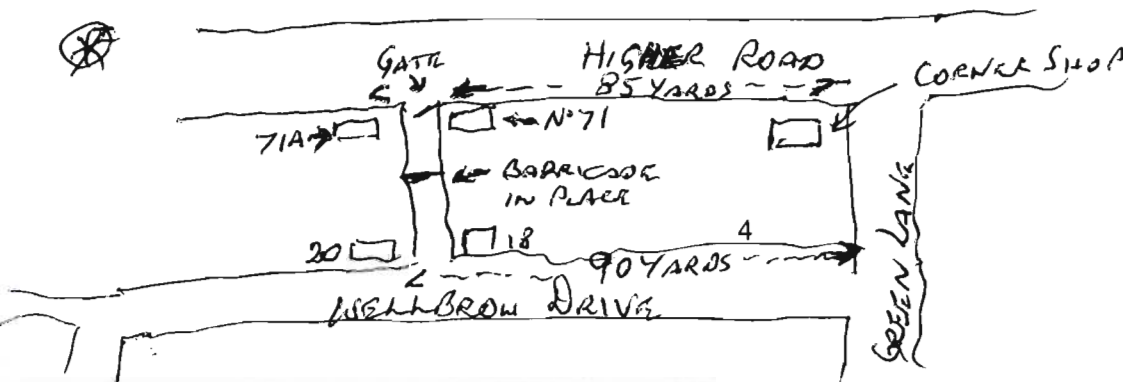 GATE
HIGHER ROAD
85 YARDS
CORNER SHOP
71A
No 71
BARRICADE
IN PLACE
20
18
4
90 YARDS
WELLBROW DRIVE
GREEN LANE